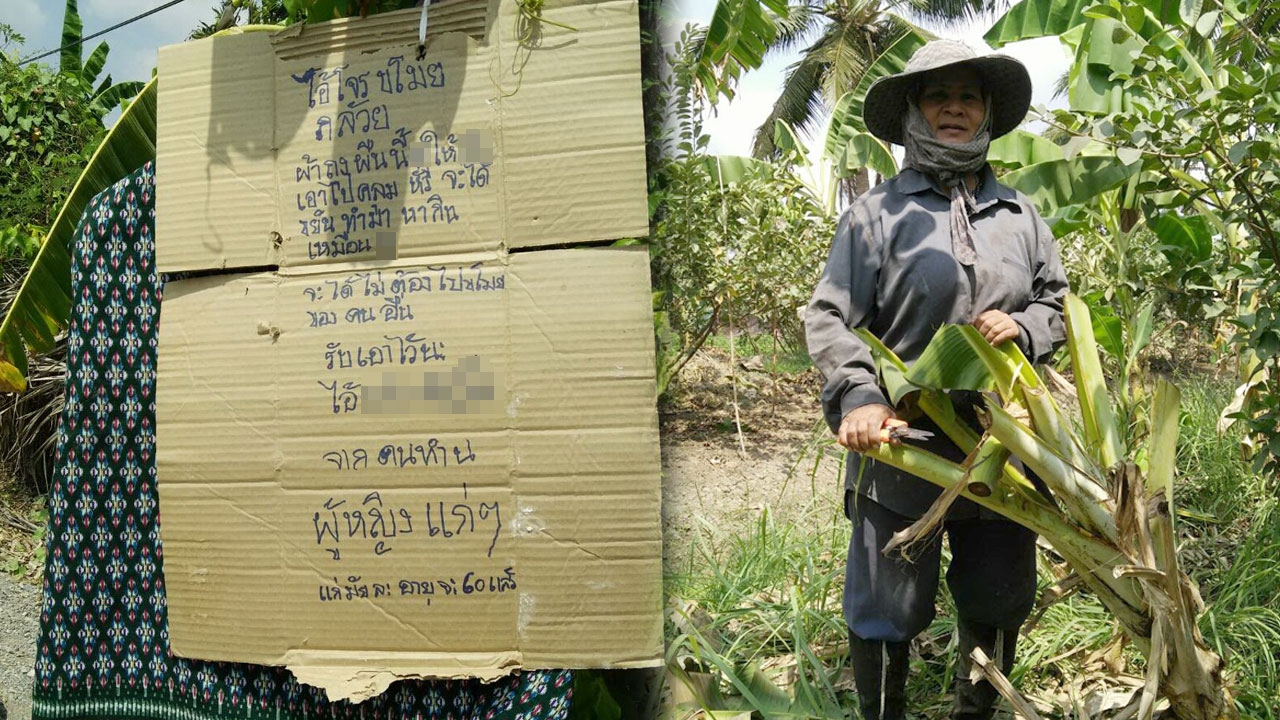 ไอ้โจร ขโมย
กล้วย
ผ้าถุงผืนนี้ ให้
เอาไปคลม หัว จะได้
ขยัน ทำม้า หากิน
เหมือน
จะได้ ไม่ ต้อง ไปขโมย
ของ คน อื่น
รับเอาไว้นะ
ไอ้
จาก คนทำน
ผู้หญิง แก่ๆ
แก่มัยละ อายุจะ 60 แล้ว